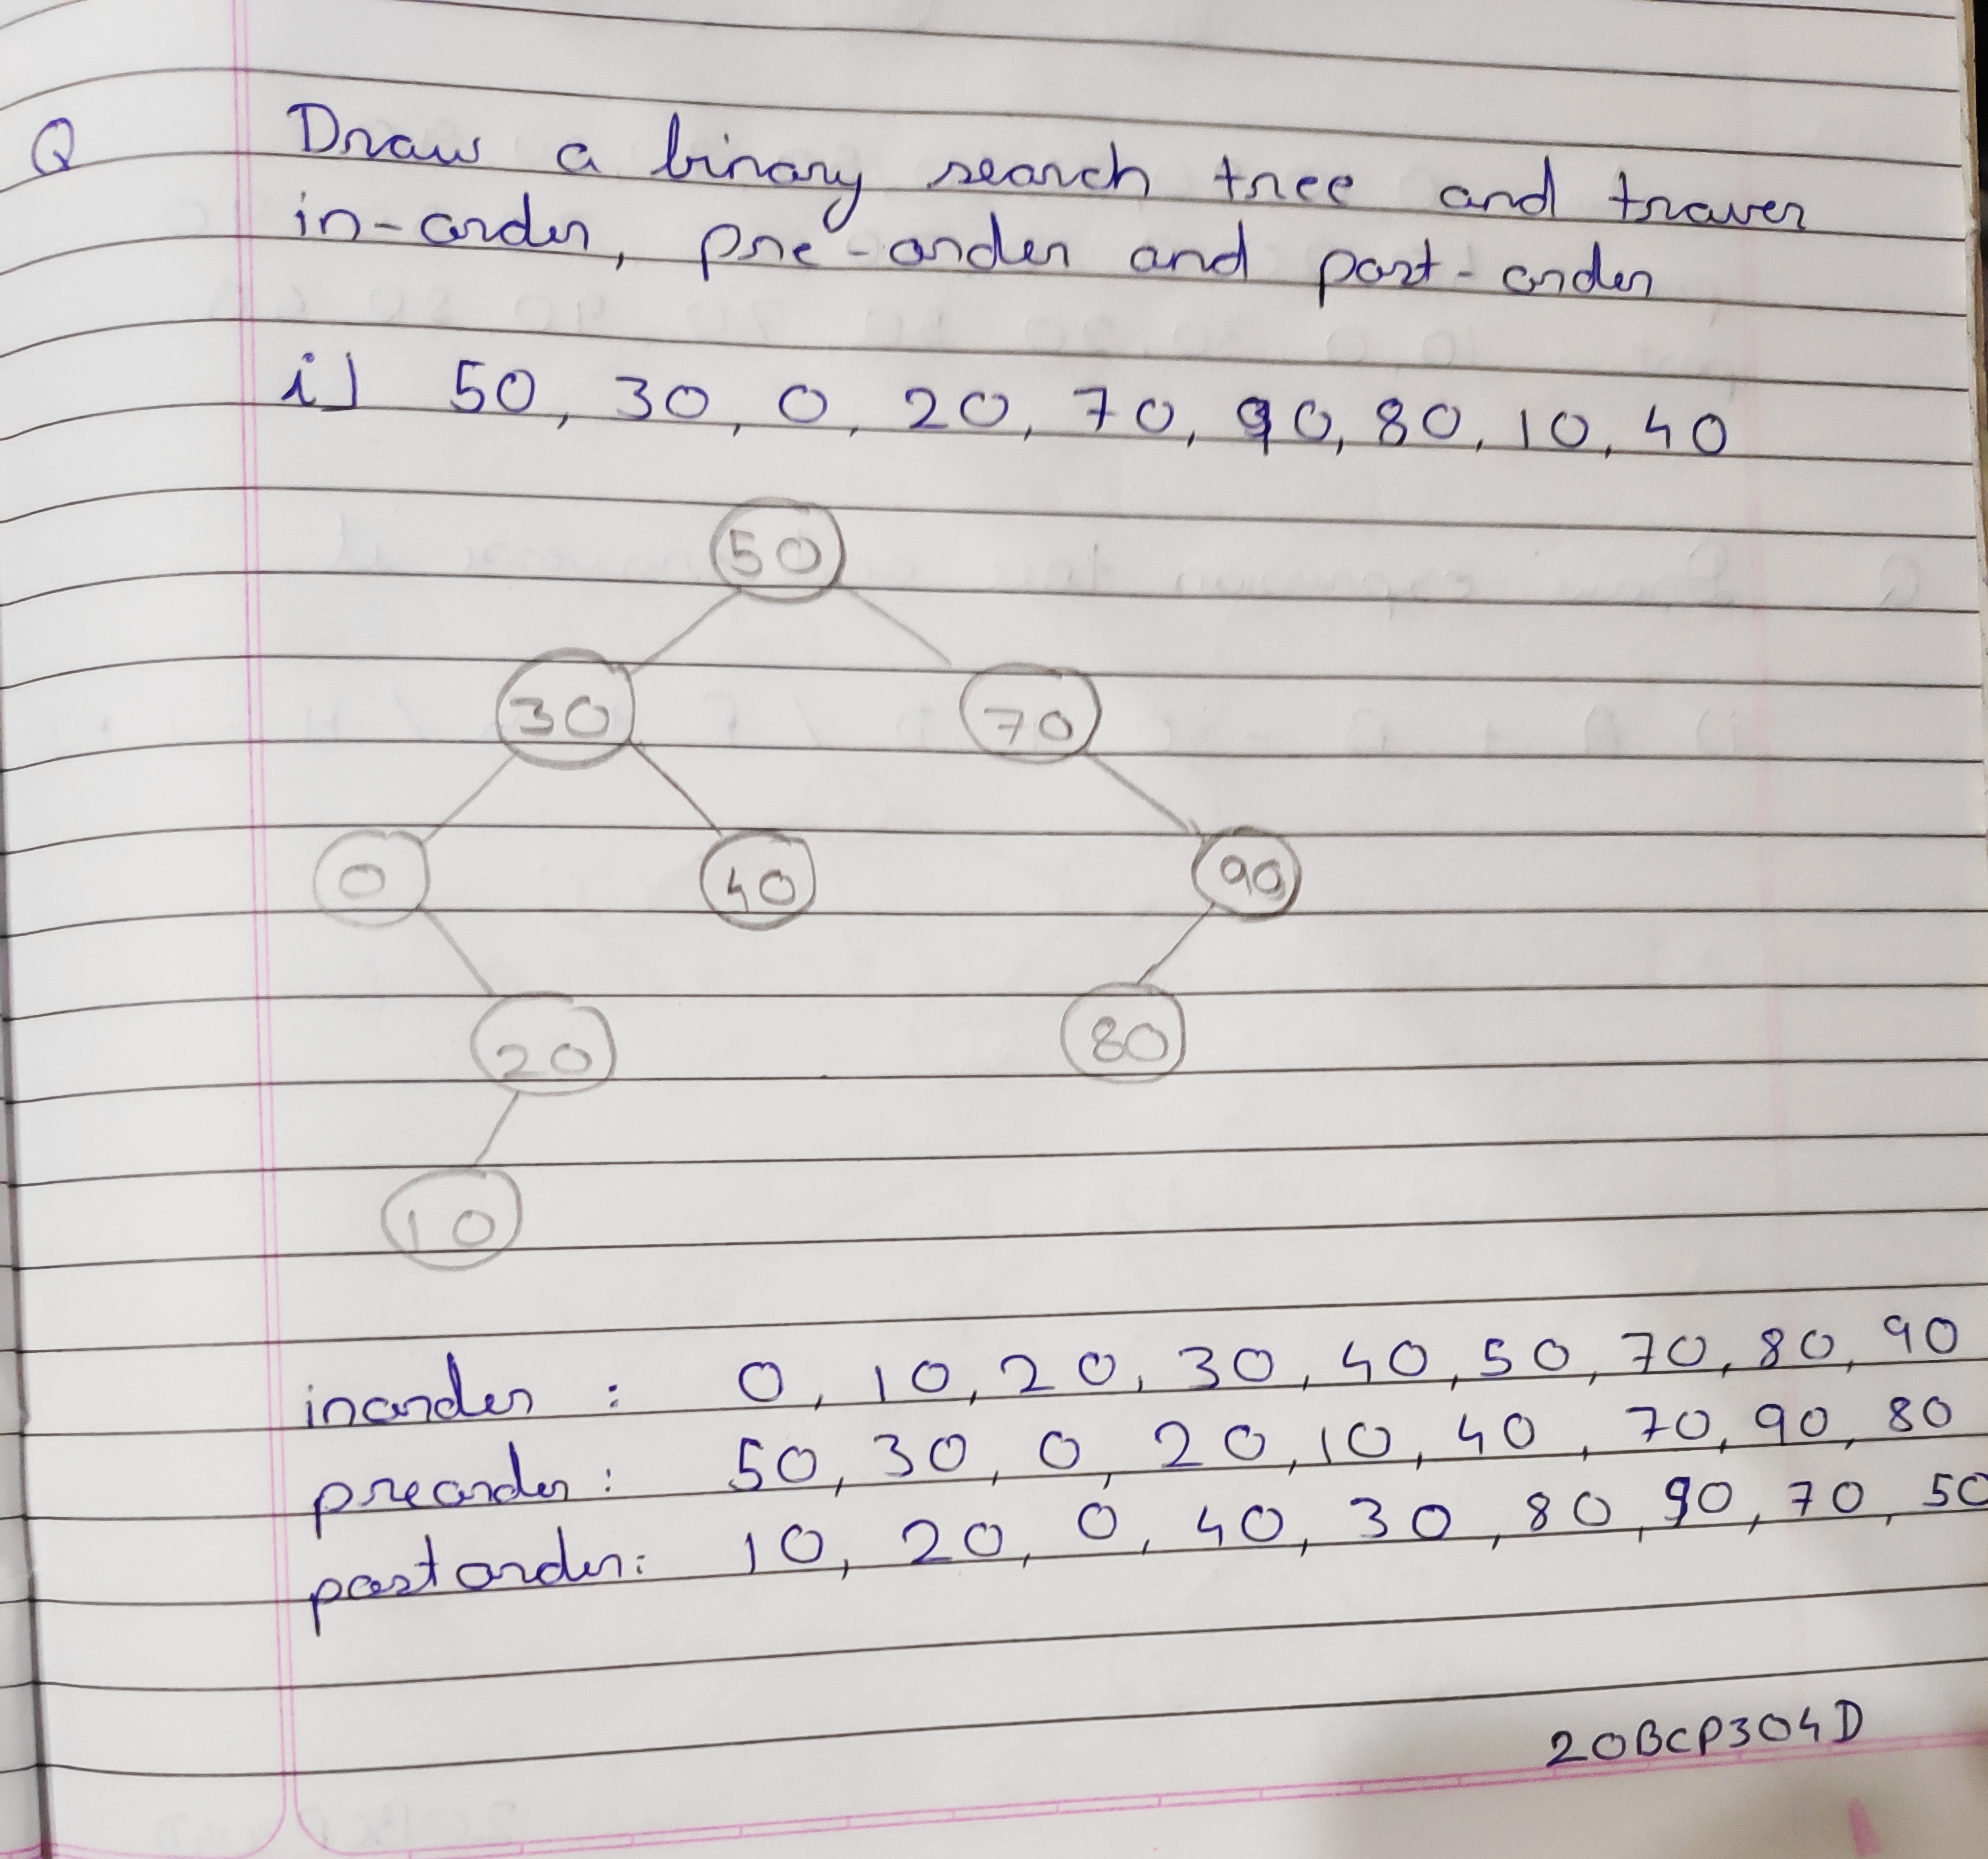 Q Draw a binary search tree and traver
in-order, pre-order and post-order
i] 50, 30, 0, 20, 70, 90, 80, 10, 40
50
30 70
0 40 90
20 80
10
inorder : 0, 10, 20, 30, 40, 50, 70, 80, 90
preorder : 50, 30, 0, 20, 10, 40, 70, 90, 80
postorder: 10, 20, 0, 40, 30, 80, 90, 70, 50
20BCP304D